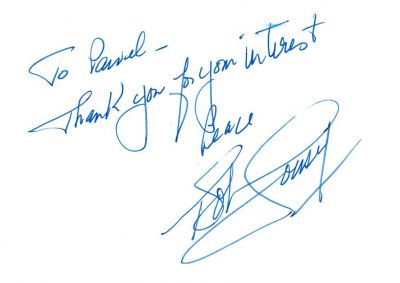 To Pawel –
Thank you for your interest
Peace
Bob Cousy